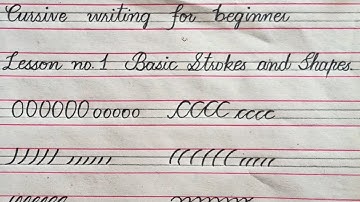 Cursive writing for beginner
Lesson no. 1 Basic Strokes and Shapes.
OOOOOO ooooo CCCC cccc